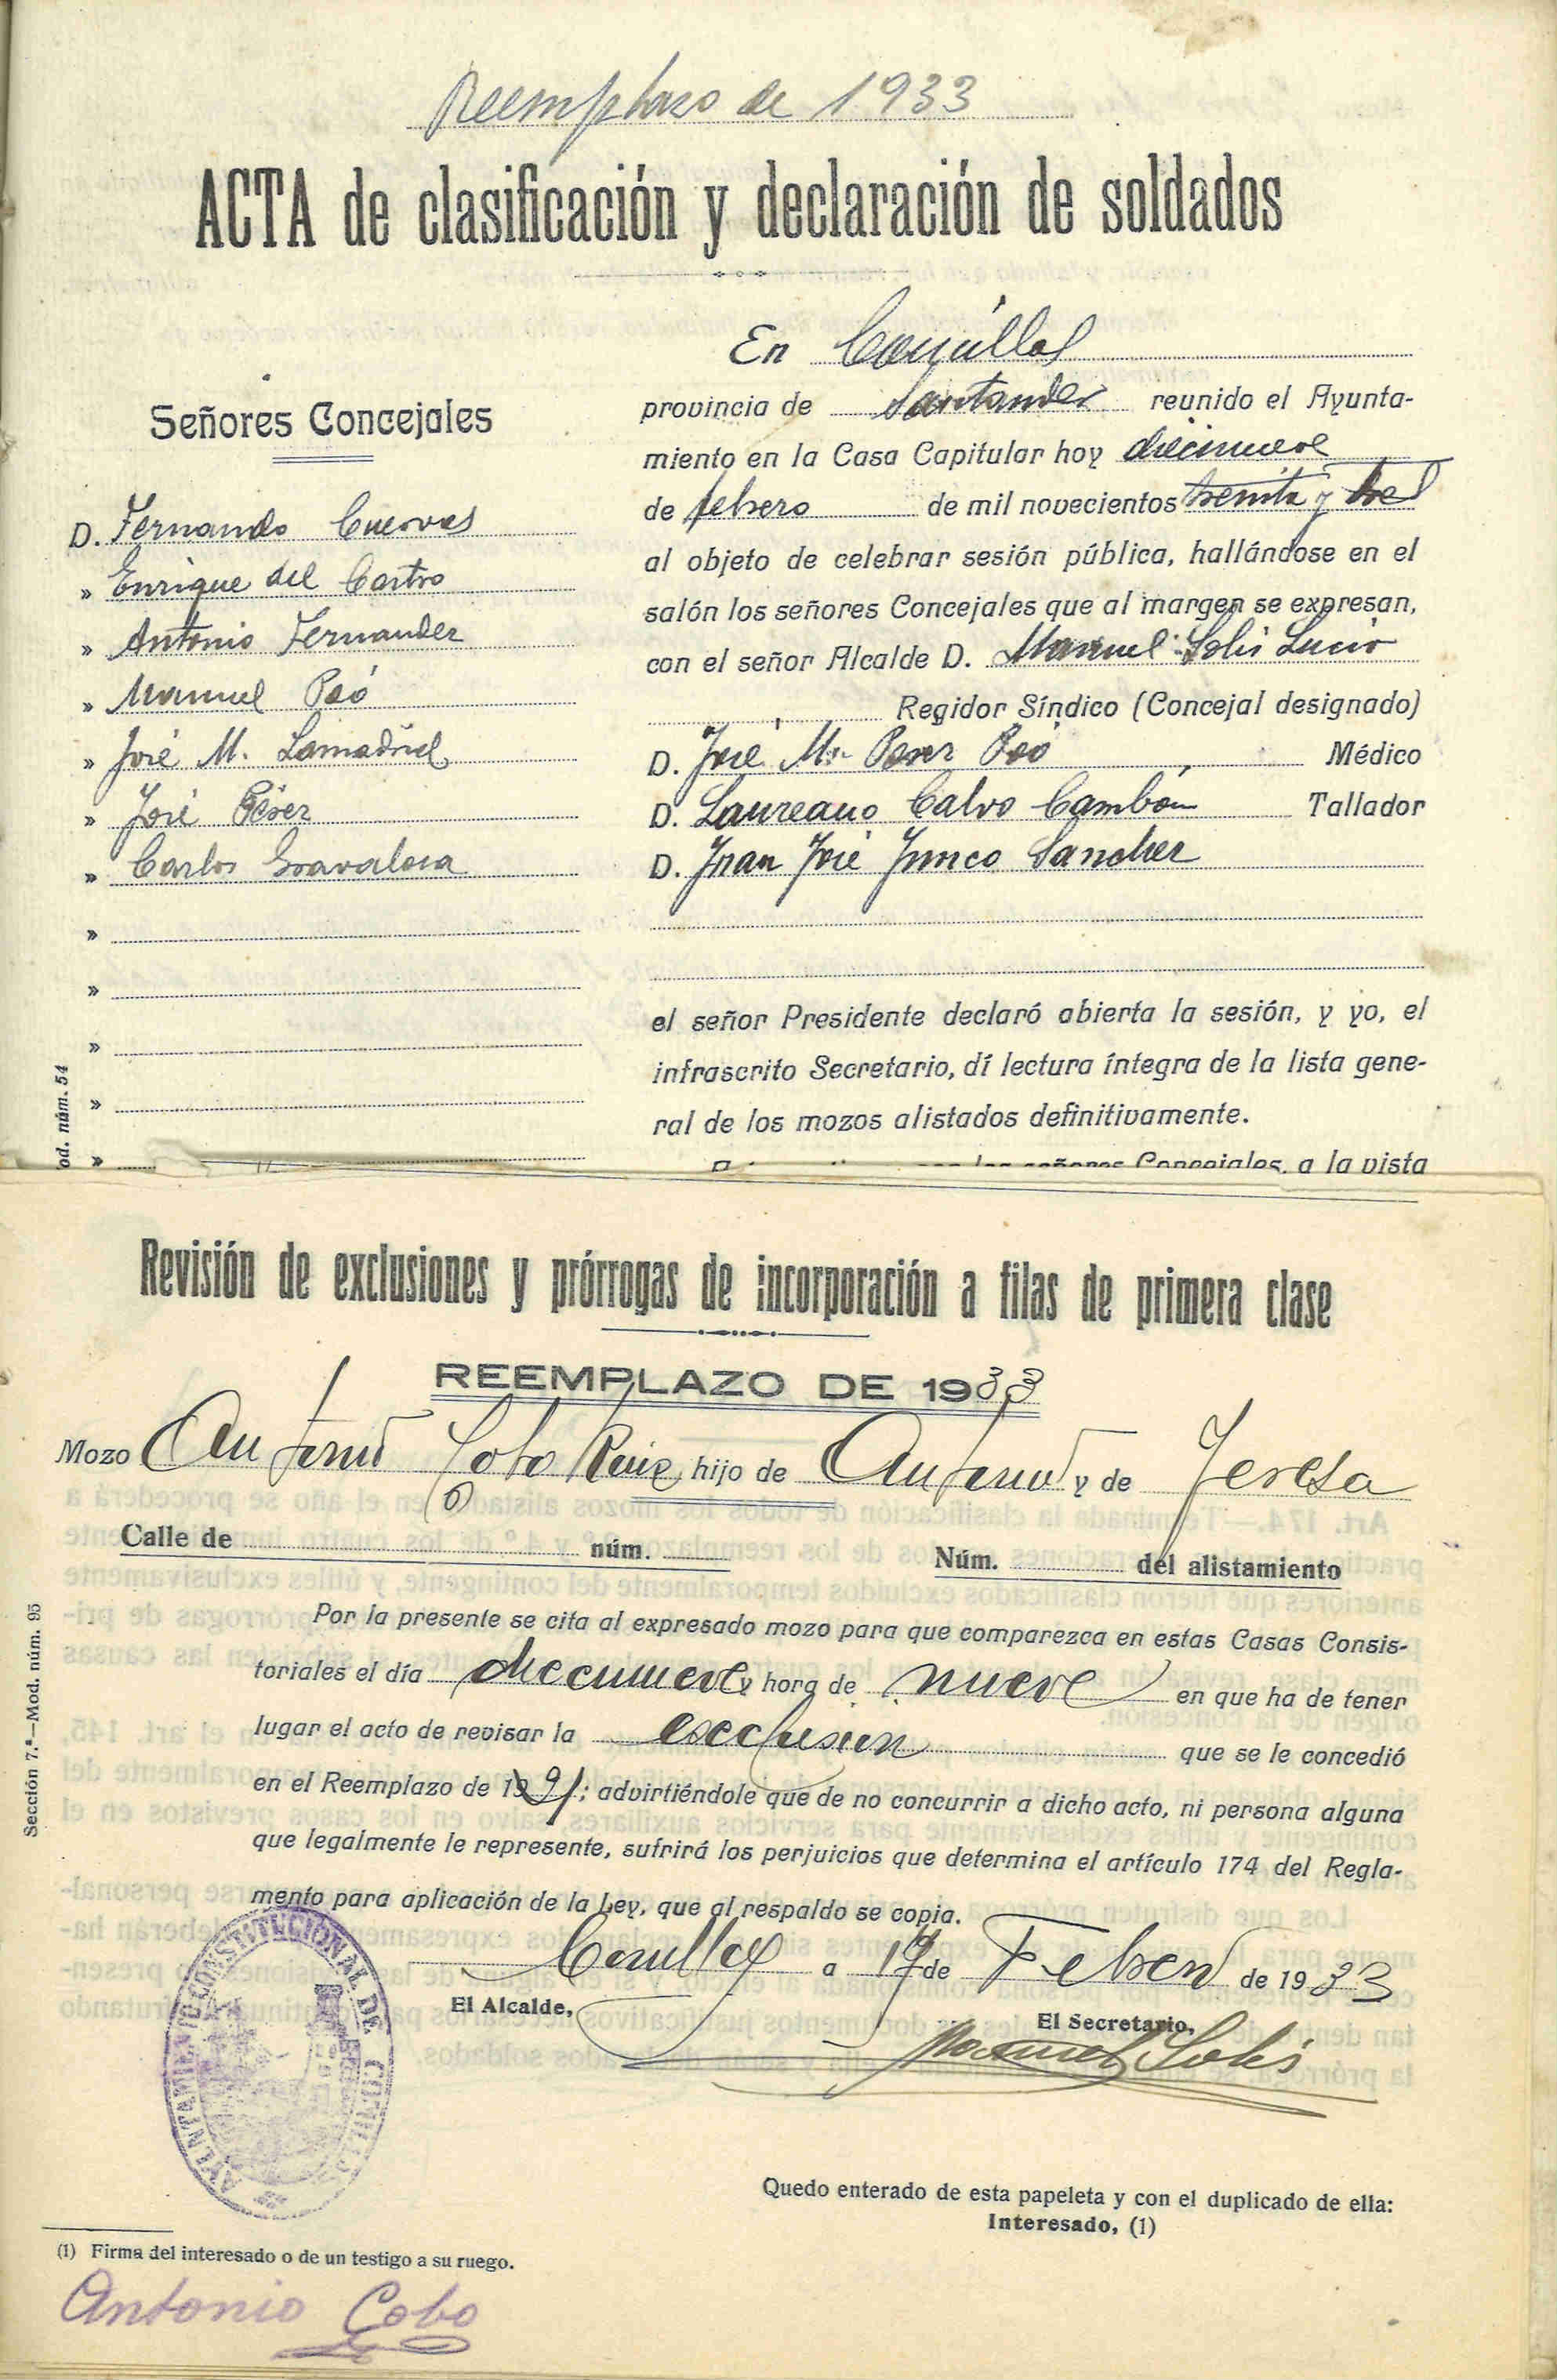 Reemplazo de 1933
ACTA de clasificación y declaración de soldados
Señores Concejales
D. Fernando Cuevas
» Enrique del Castro
» Antonio Fernandez
» Manuel Peó
» José M. Lamadrid
» José Pérez
» Carlos
»
»
»
»
»
od. núm. 54
En Comillas
provincia de Santander reunido el Ayunta-
miento en la Casa Capitular hoy diecinueve
de febrero de mil novecientos treinta y tres
al objeto de celebrar sesión pública, hallándose en el
salón los señores Concejales que al margen se expresan,
con el señor Alcalde D. Manuel Solis Lucio
Regidor Síndico (Concejal designado)
D. José Mª Perez Peó Médico
D. Laureano Calvo Cambón Tallador
D. Juan José Junco Sanchez
el señor Presidente declaró abierta la sesión, y yo, el
infrascrito Secretario, dí lectura íntegra de la lista gene-
ral de los mozos alistados definitivamente.
los señores Concejales, a la vista
Revisión de exclusiones y prórrogas de incorporación a filas de primera clase
REEMPLAZO DE 1933
Mozo Antonio Cobo Ruiz hijo de Antonio y de Teresa
Calle de núm. Núm. del alistamiento
Por la presente se cita al expresado mozo para que comparezca en estas Casas Consis-
toriales el día diecinueve y hora de nueve en que ha de tener
lugar el acto de revisar la exclusión que se le concedió
en el Reemplazo de 19; advirtiéndole que de no concurrir a dicho acto, ni persona alguna
que legalmente le represente, sufrirá los perjuicios que determina el artículo 174 del Regla-
mento para aplicación de la Ley, que al respaldo se copia.
Comillas a 17 de Febrero de 1933
El Alcalde, El Secretario,
Manuel Solis
AYUNTAMIENTO CONSTITUCIONAL DE COMILLAS
Sección 7.ª—Mod. núm. 95
Quedo enterado de esta papeleta y con el duplicado de ella:
Interesado, (1)
(1) Firma del interesado o de un testigo a su ruego.
Antonio Cobo